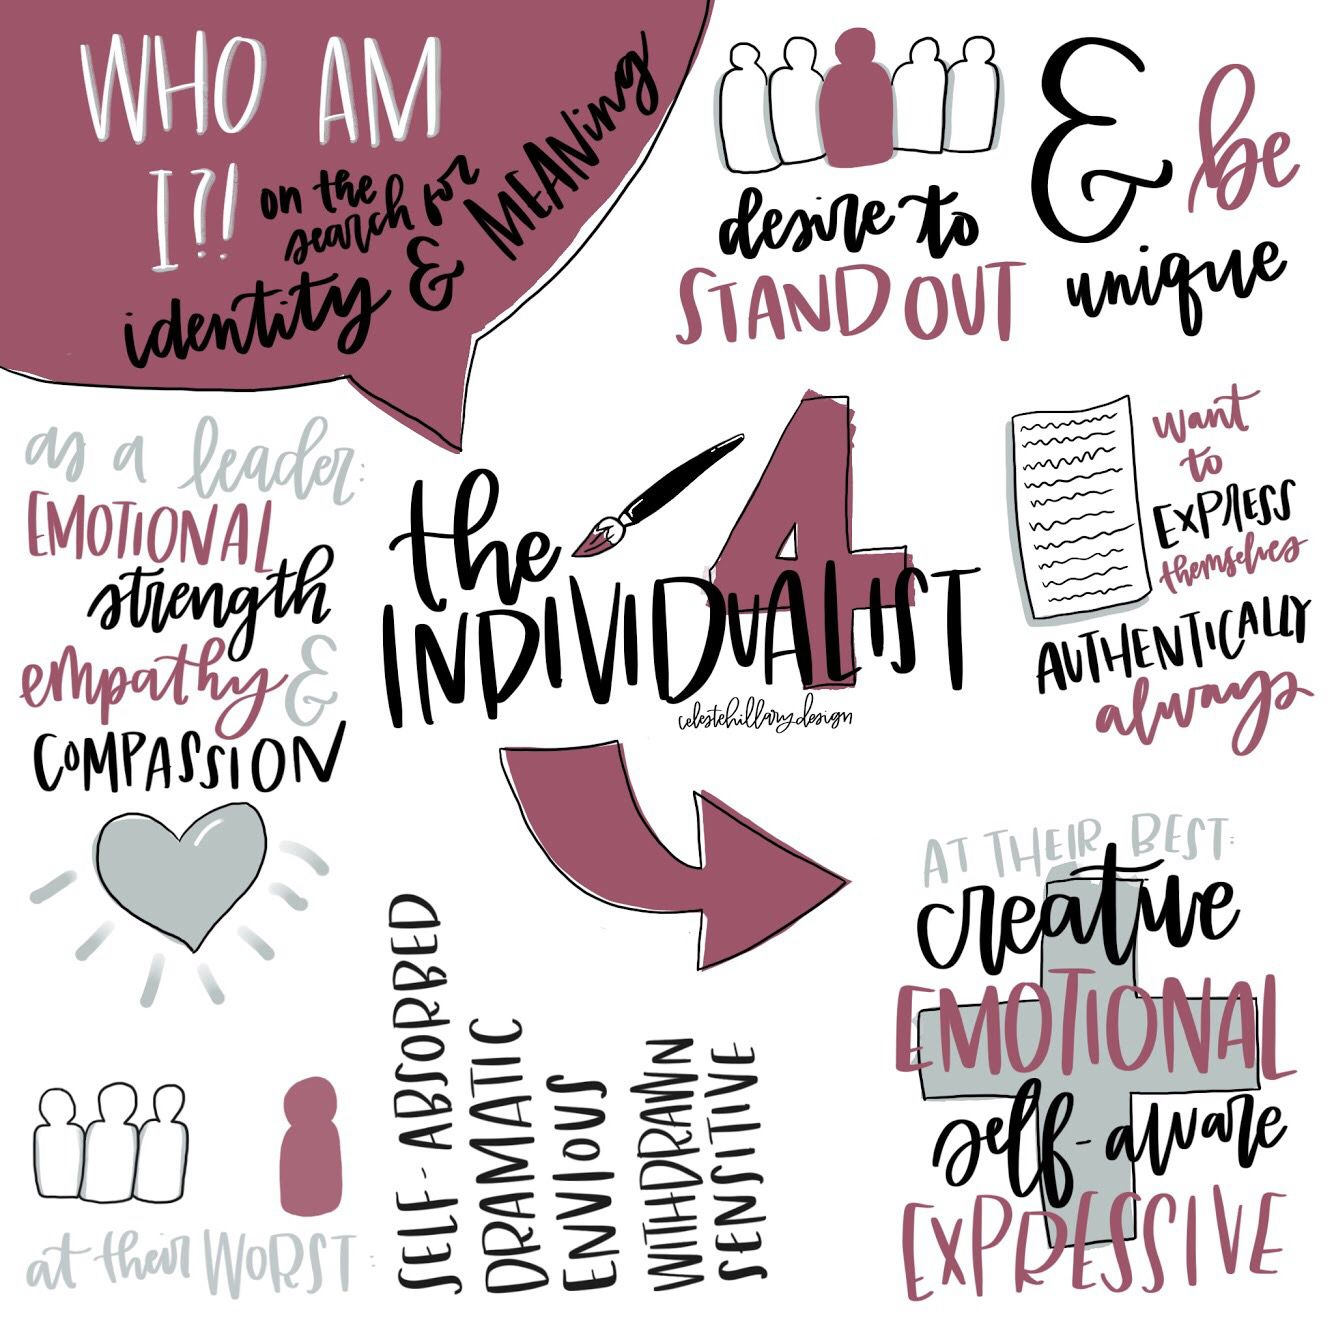 WHO AM
I?!
on the
search for
identity & MEANing
desire to
STAND OUT
& be
unique
as a leader:
EMOTIONAL
strength
empathy &
COMPASSION
the
INDIVIDUALIST
4
celestehillarydesign
want
to
EXPRESS
themselves
AUTHENTICALLY
always
at their WORST:
SELF-ABSORBED
DRAMATIC
ENVIOUS
WITHDRAWN
SENSITIVE
AT THEIR BEST:
creative
EMOTIONAL
self-aware
EXPRESSIVE